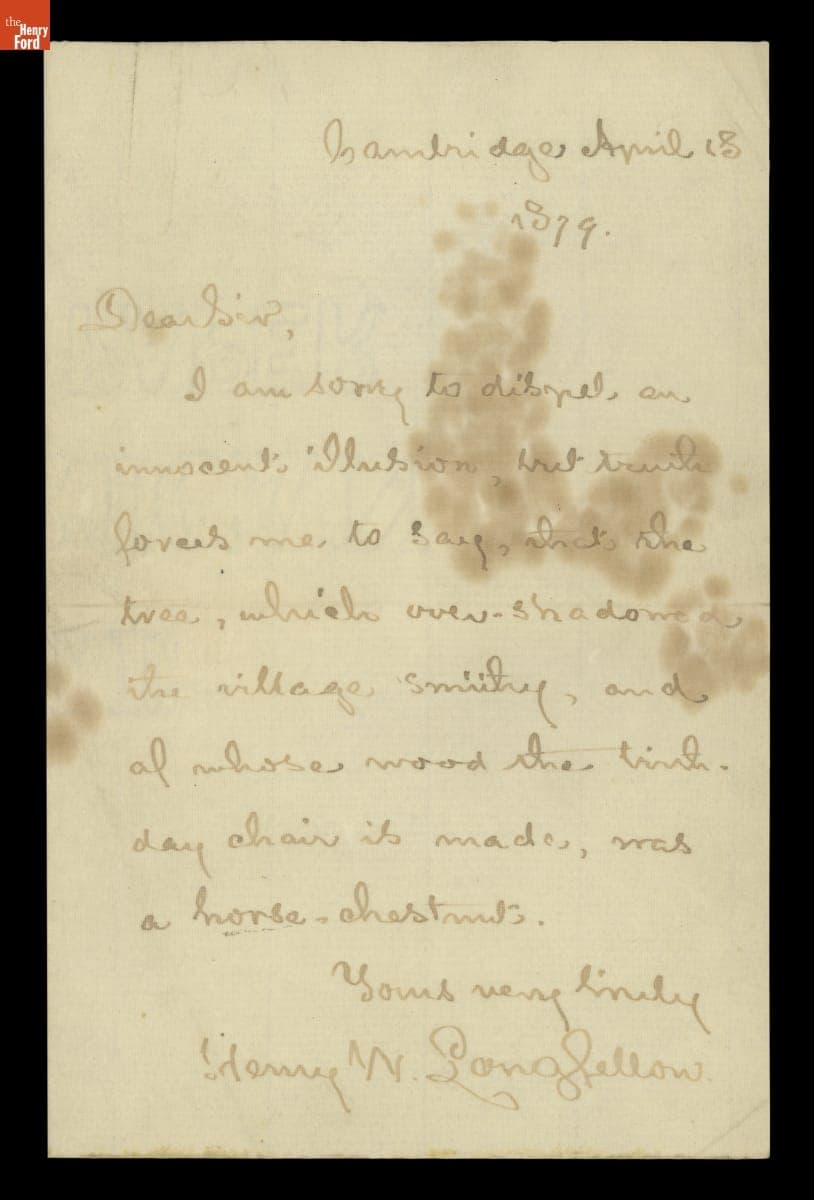 the
Henry
Ford
Cambridge April 18
1879.
Dear Sir,
I am sorry to dispel an
innocent illusion, but truth
forces me to say, that the
tree, which over-shadowed
the village smithy, and
of whose wood the birth-
day chair is made, was
a horse-chestnut.
Yours very truly
Henry W. Longfellow.